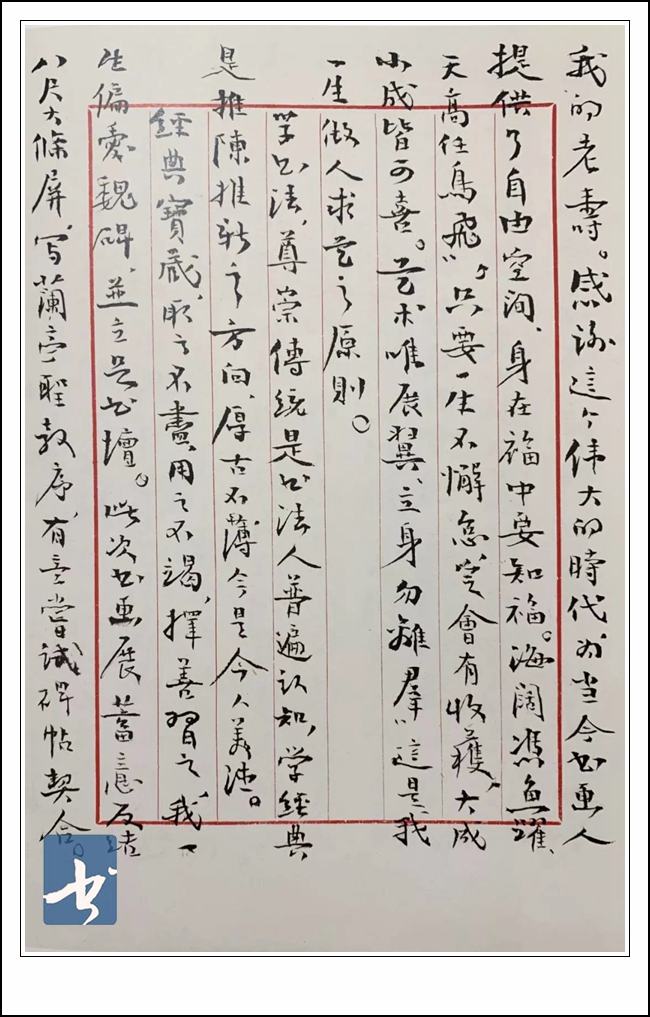 我的老壽。感谢這个伟大的時代为当今书画人
提供了自由空间、身在福中要知福。海阔馮鱼躍、
天高任鸟飛”，只要一生不懈怠，定會有收獲，大成
小成皆可喜。艺术唯展翼、立身勿離羣”這是我
一生做人求艺之原則。
学书法，尊崇傳統是书法人普遍认知，学經典
是推陳推新之方向，厚古不薄今是今人美德。
經典寶藏，取之不盡，用之不竭，擇善習之，我一
生偏爱魏碑，並立足书壇。此次书画展蓄意反
八尺大條屏，写蘭亭聖教序，有意當试碑帖契合。
书